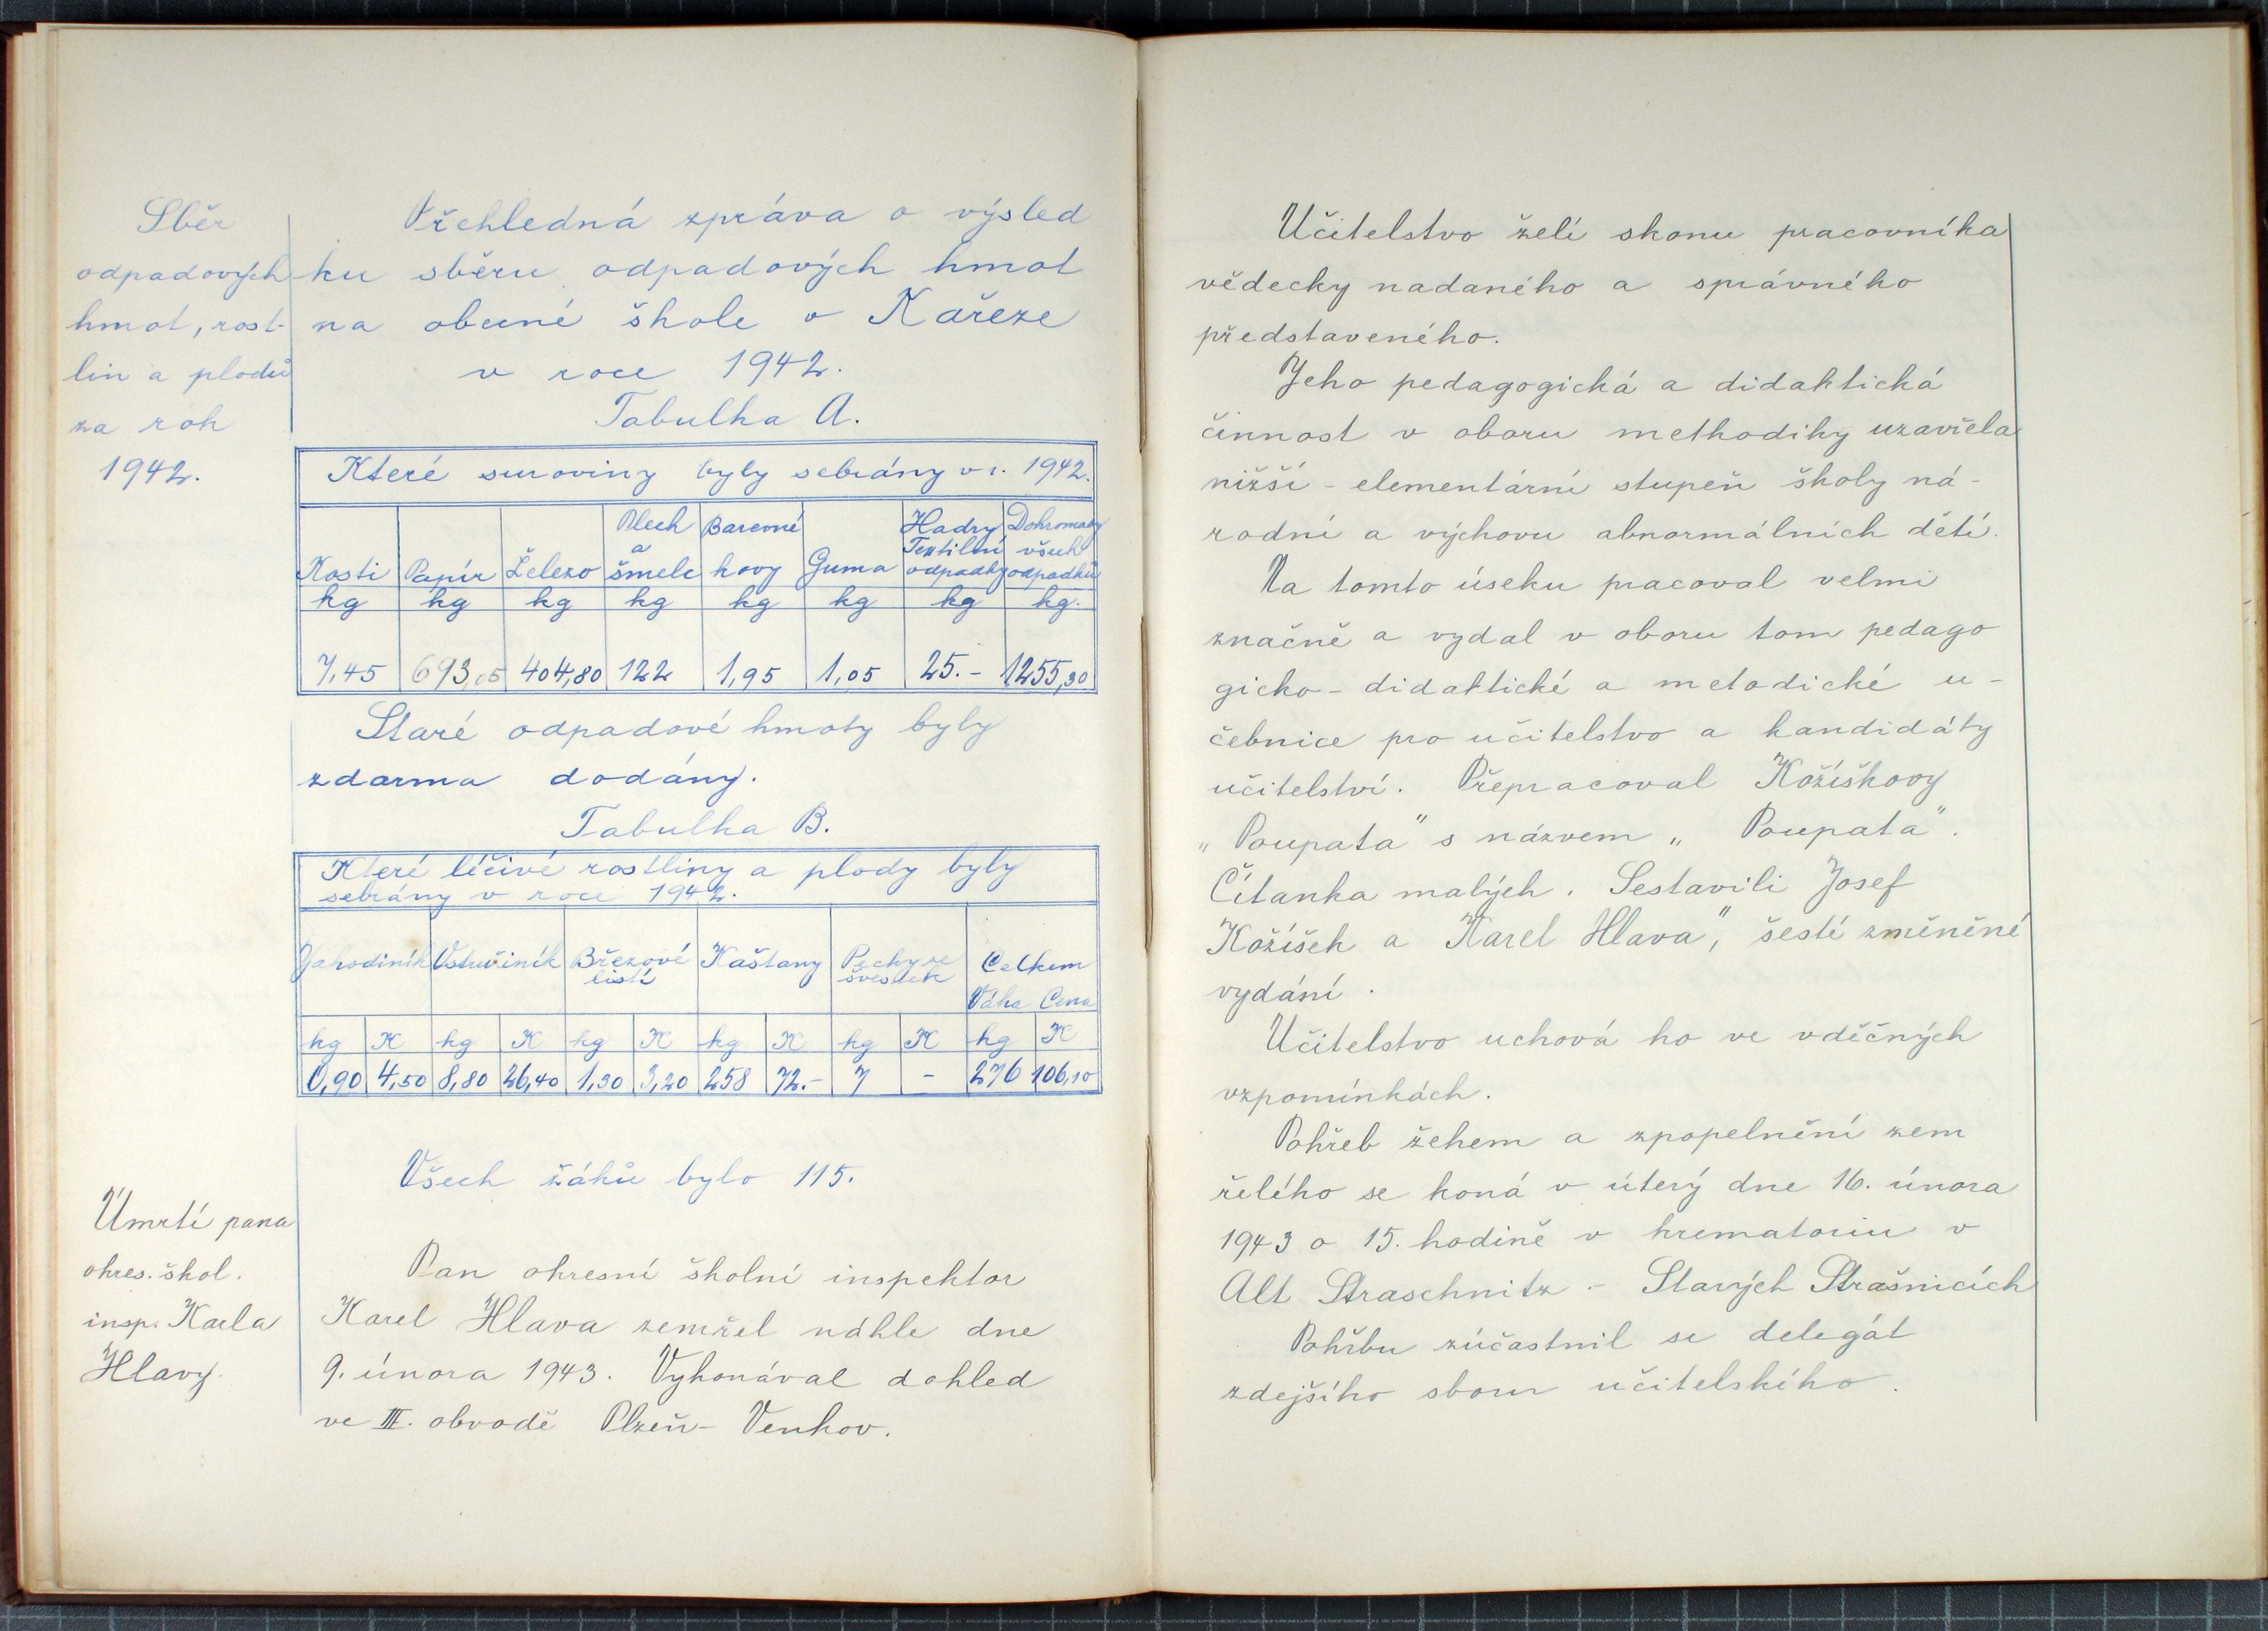 Sběr
odpadových
hmot, rost-
lin a plodů
za rok
1942.
Přehledná zpráva o výsled
ku sběru odpadových hmot
na obecné škole v Kařeze
v roce 1942.
Tabulka A.
Které suroviny byly sebrány v r. 1942.
Kosti Papír Železo Plech a šmelc Barevné kovy Guma Hadry Textilní odpadky Dohromady všech odpadků
kg kg kg kg kg kg kg kg.
7,45 693,05 404,80 122 1,95 1,05 25.- 1255,30
Staré odpadové hmoty byly
zdarma dodány.
Tabulka B.
Které léčivé rostliny a plody byly
sebrány v roce 1942.
Jahodiník Ostružiník Březové listí Kaštany Pecky ze švestek Celkem
Váha Cena
kg K kg K kg K kg K kg K kg K
0,90 4,50 8,80 26,40 1,30 3,20 258 72.- 7 - 276 106,10
Všech žáků bylo 115.
Úmrtí pana
okres. škol.
insp. Karla
Hlavy.
Pan okresní školní inspektor
Karel Hlava zemřel náhle dne
9. února 1943. Vykonával dohled
ve III. obvodě Plzeň - Venkov.
Učitelstvo želí skonu pracovníka
vědecky nadaného a správného
představeného.
Jeho pedagogická a didaktická
činnost v oboru methodiky uzavřela
nižší - elementární stupeň školy ná-
rodní a výchovu abnormálních dětí.
Na tomto úseku pracoval velmi
značně a vydal v oboru tom pedago
gicko - didaktické a metodické u-
čebnice pro učitelstvo a kandidáty
učitelství. Přepracoval Kožíškovy
„Poupata" s názvem „Poupata".
Čítanka malých. Sestavili Josef
Kožíšek a Karel Hlava", šesté změněné
vydání.
Učitelstvo uchová ho ve vděčných
vzpomínkách.
Pohřeb žehem a zpopelnění zem
řelého se koná v úterý dne 16. února
1943 o 15. hodině v krematoriu v
Alt Straschnitz - Starých Strašnicích
Pohřbu zúčastnil se delegát
zdejšího sboru učitelského.